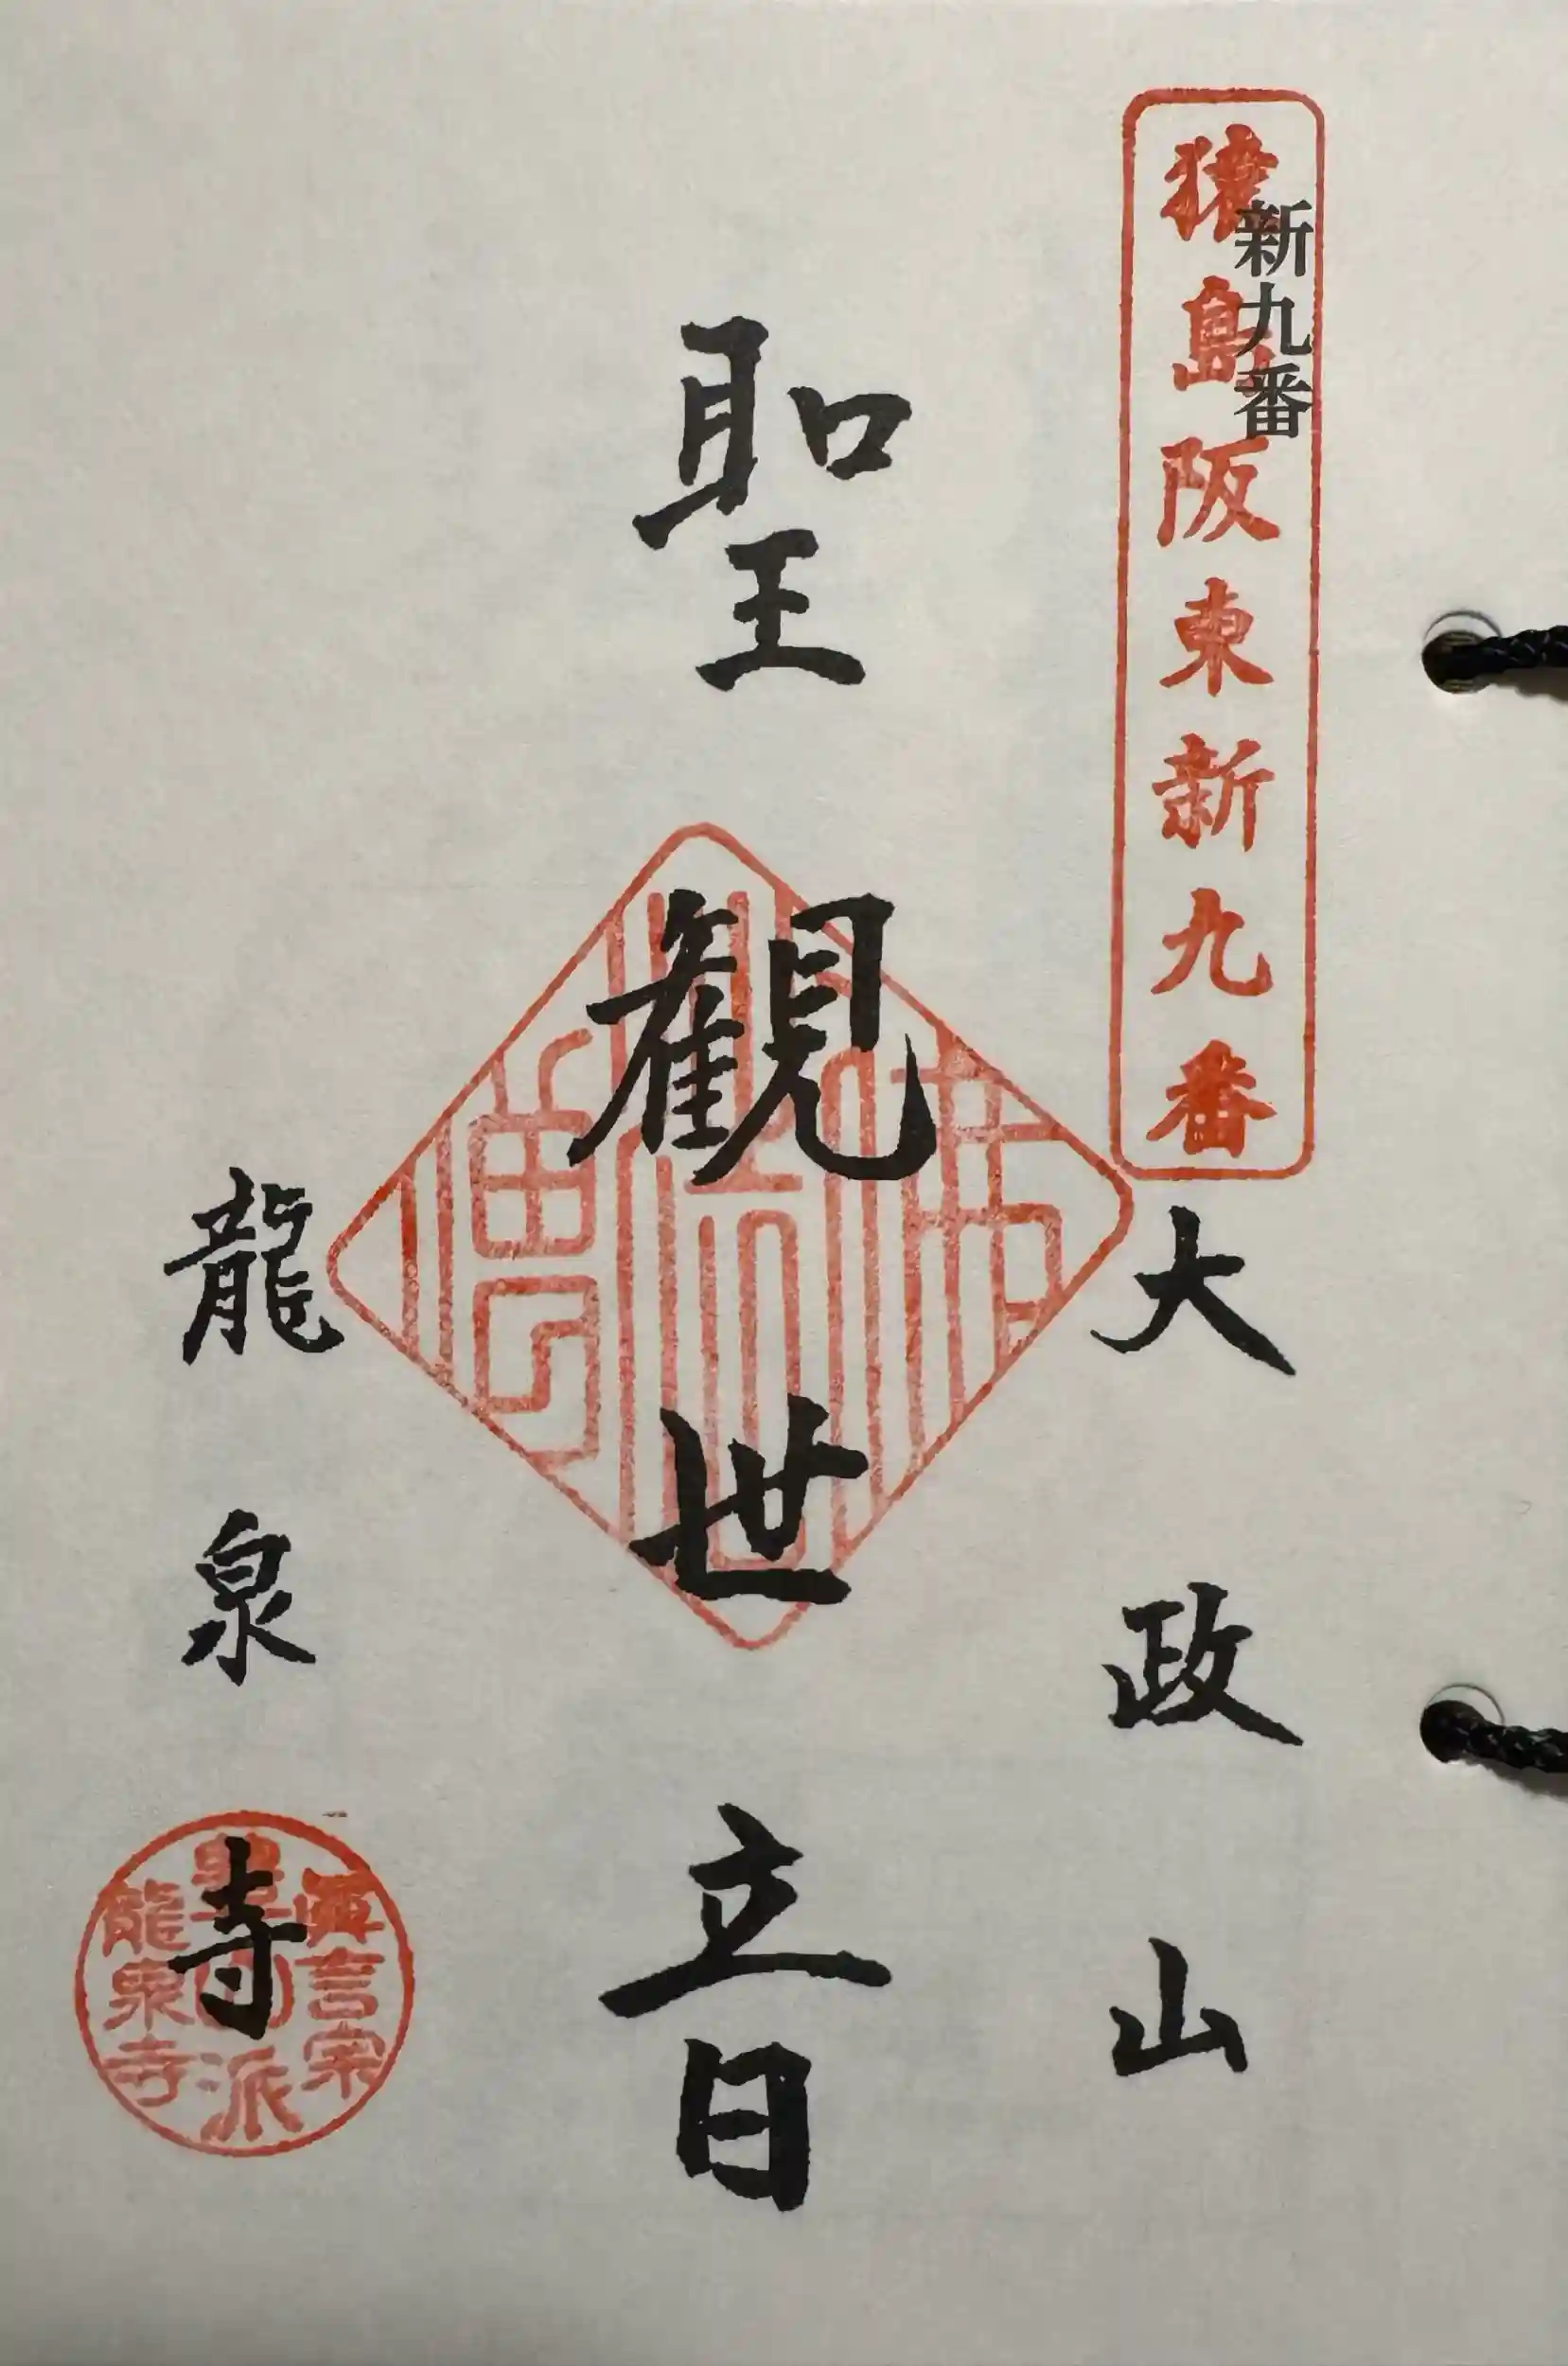 新九番
猿島阪東新九番
大政山
聖観世音
龍泉寺
佛法僧寳
眞言宗
豊山派
龍泉寺